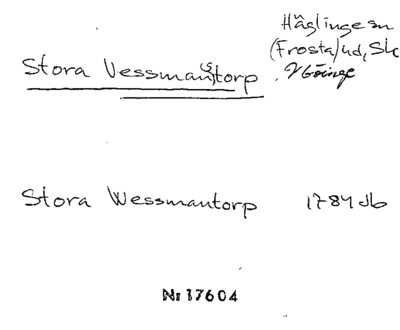 Häglinge sn
(Frosta) hd, Sk
V Göinge
Stora Vessmanstorp
Stora Wessmantorp 1784 db
Nr 17604